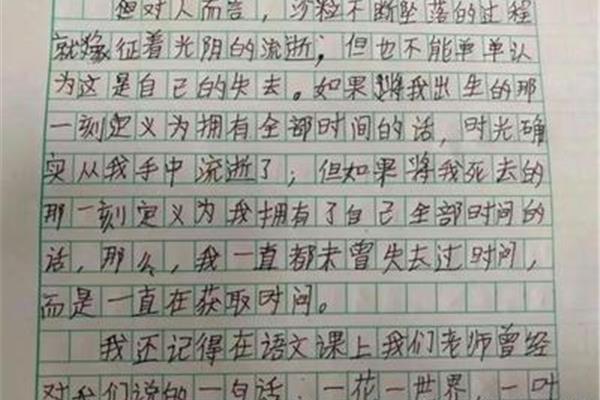 但对人而言，沙粒不断坠落的过程
就象征着光阴的流逝；但也不能单单认
为这是自己的失去。如果将我出生的那
一刻定义为拥有全部时间的话，时光确
实从我手中流逝了；但如果将我死去的
那一刻定义为我拥有了自己全部时间的
话，那么，我一直都未曾失去过时间，
而是一直在获取时间。
我还记得在语文课上我们老师曾经
对我们说的一句话：一花一世界，一叶